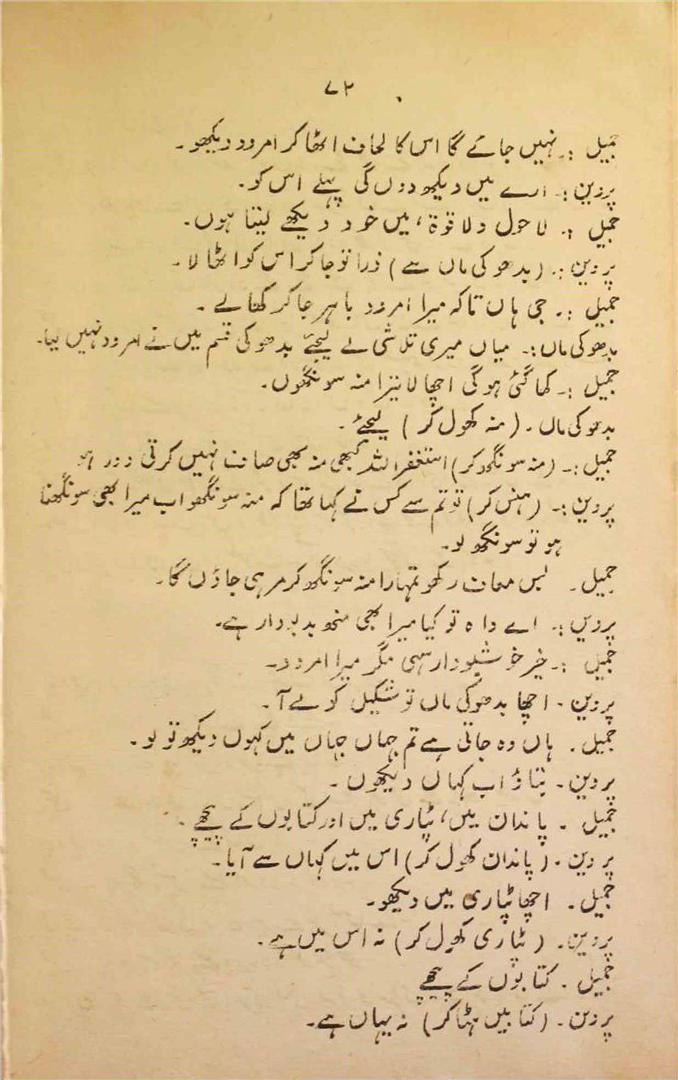 ۷۲
جمیل :۔ نہیں جائے گا اس کا لحاف اٹھا کر امرود دیکھو۔
پروین :۔ ارے میں دیکھ دوں گی پہلے اس کو۔
جمیل :۔ لاحول ولا قوۃ، میں خود دیکھے لیتا ہوں۔
پروین :۔ (بدھو کی ماں سے) ذرا تو جا کر اس کو اٹھا لا۔
جمیل :۔ جی ہاں تاکہ میرا امرود باہر جا کر کھالے۔
بدھو کی ماں :۔ میاں میری تلاشی لے لیجئے بدھو کی قسم میں نے امرود نہیں لیا۔
جمیل :۔ کھا گئی ہوگی اچھا لا تیرا منہ سونگھوں۔
بدھو کی ماں۔ (منہ کھول کر) لیجئے۔
جمیل :۔ (منہ سونگھ کر) استغفر اللہ کبھی منہ بھی صاف نہیں کرتی دور ہو
پروین :۔ (ہنس کر) تو تم سے کس نے کہا تھا کہ منہ سونگھو اب میرا بھی سونگھنا
ہو تو سونگھ لو۔
جمیل۔ بس معاف رکھو تمہارا منہ سونگھ کر مر ہی جاؤں گا۔
پروین :۔ اے واہ تو کیا میرا بھی منھ بدبودار ہے۔
جمیل :۔ خیر خوشبودار سہی مگر میرا امرود۔
پروین۔ اچھا بدھو کی ماں تو شکیل کو لے آ۔
جمیل۔ ہاں وہ جاتی ہے تم جہاں جہاں میں کہوں دیکھ تو لو۔
پروین۔ بتاؤ اب کہاں دیکھوں۔
جمیل۔ پاندان میں، پٹاری میں اور کتابوں کے پیچھے۔
پروین۔ (پاندان کھول کر) اس میں کہاں سے آیا۔
جمیل۔ اچھا پٹاری میں دیکھو۔
پروین۔ (پٹاری کھول کر) نہ اس میں ہے۔
جمیل۔ کتابوں کے پیچھے
پروین۔ (کتابیں ہٹا کر) نہ یہاں ہے۔